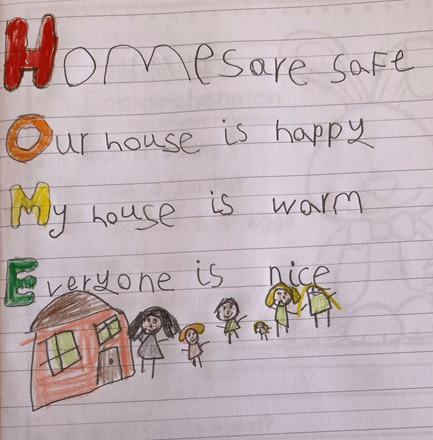 Homes are safe
Our house is happy
My house is warm
Everyone is nice